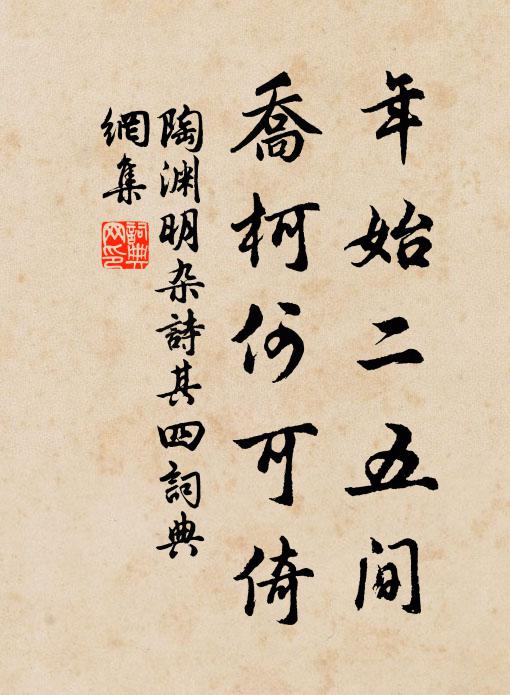 年始二五间
喬柯何可倚
陶渊明杂詩其四詞典
網集
詞典
网印